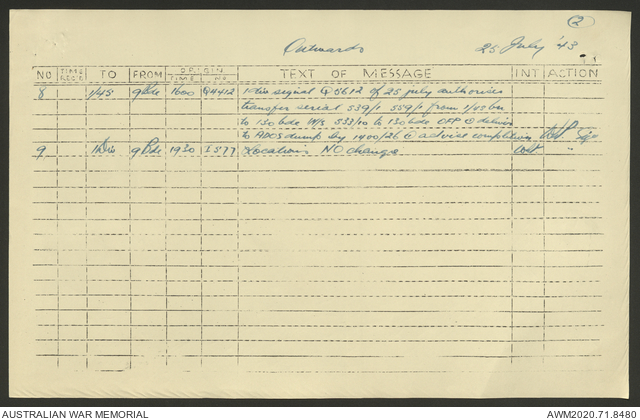 2
Outwards 25 July '43
NO TIME REC'D TO FROM ORIGIN TIME NO. TEXT OF MESSAGE INT ACTION
8 1/45 9 Bde 1600 QH412 1 Div signal Q 5612 of 25 July authorises
transfer serial 539/1 559/1 from 1/45 bn
to 130 bde W/S 533/10 to 130 bde OFP @ deliver
to ADOS dump by 1400/26 @ advise completion
9 1 Div 9 Bde 1930 I577 Locations NO change "
AUSTRALIAN WAR MEMORIAL AWM2020.71.8480